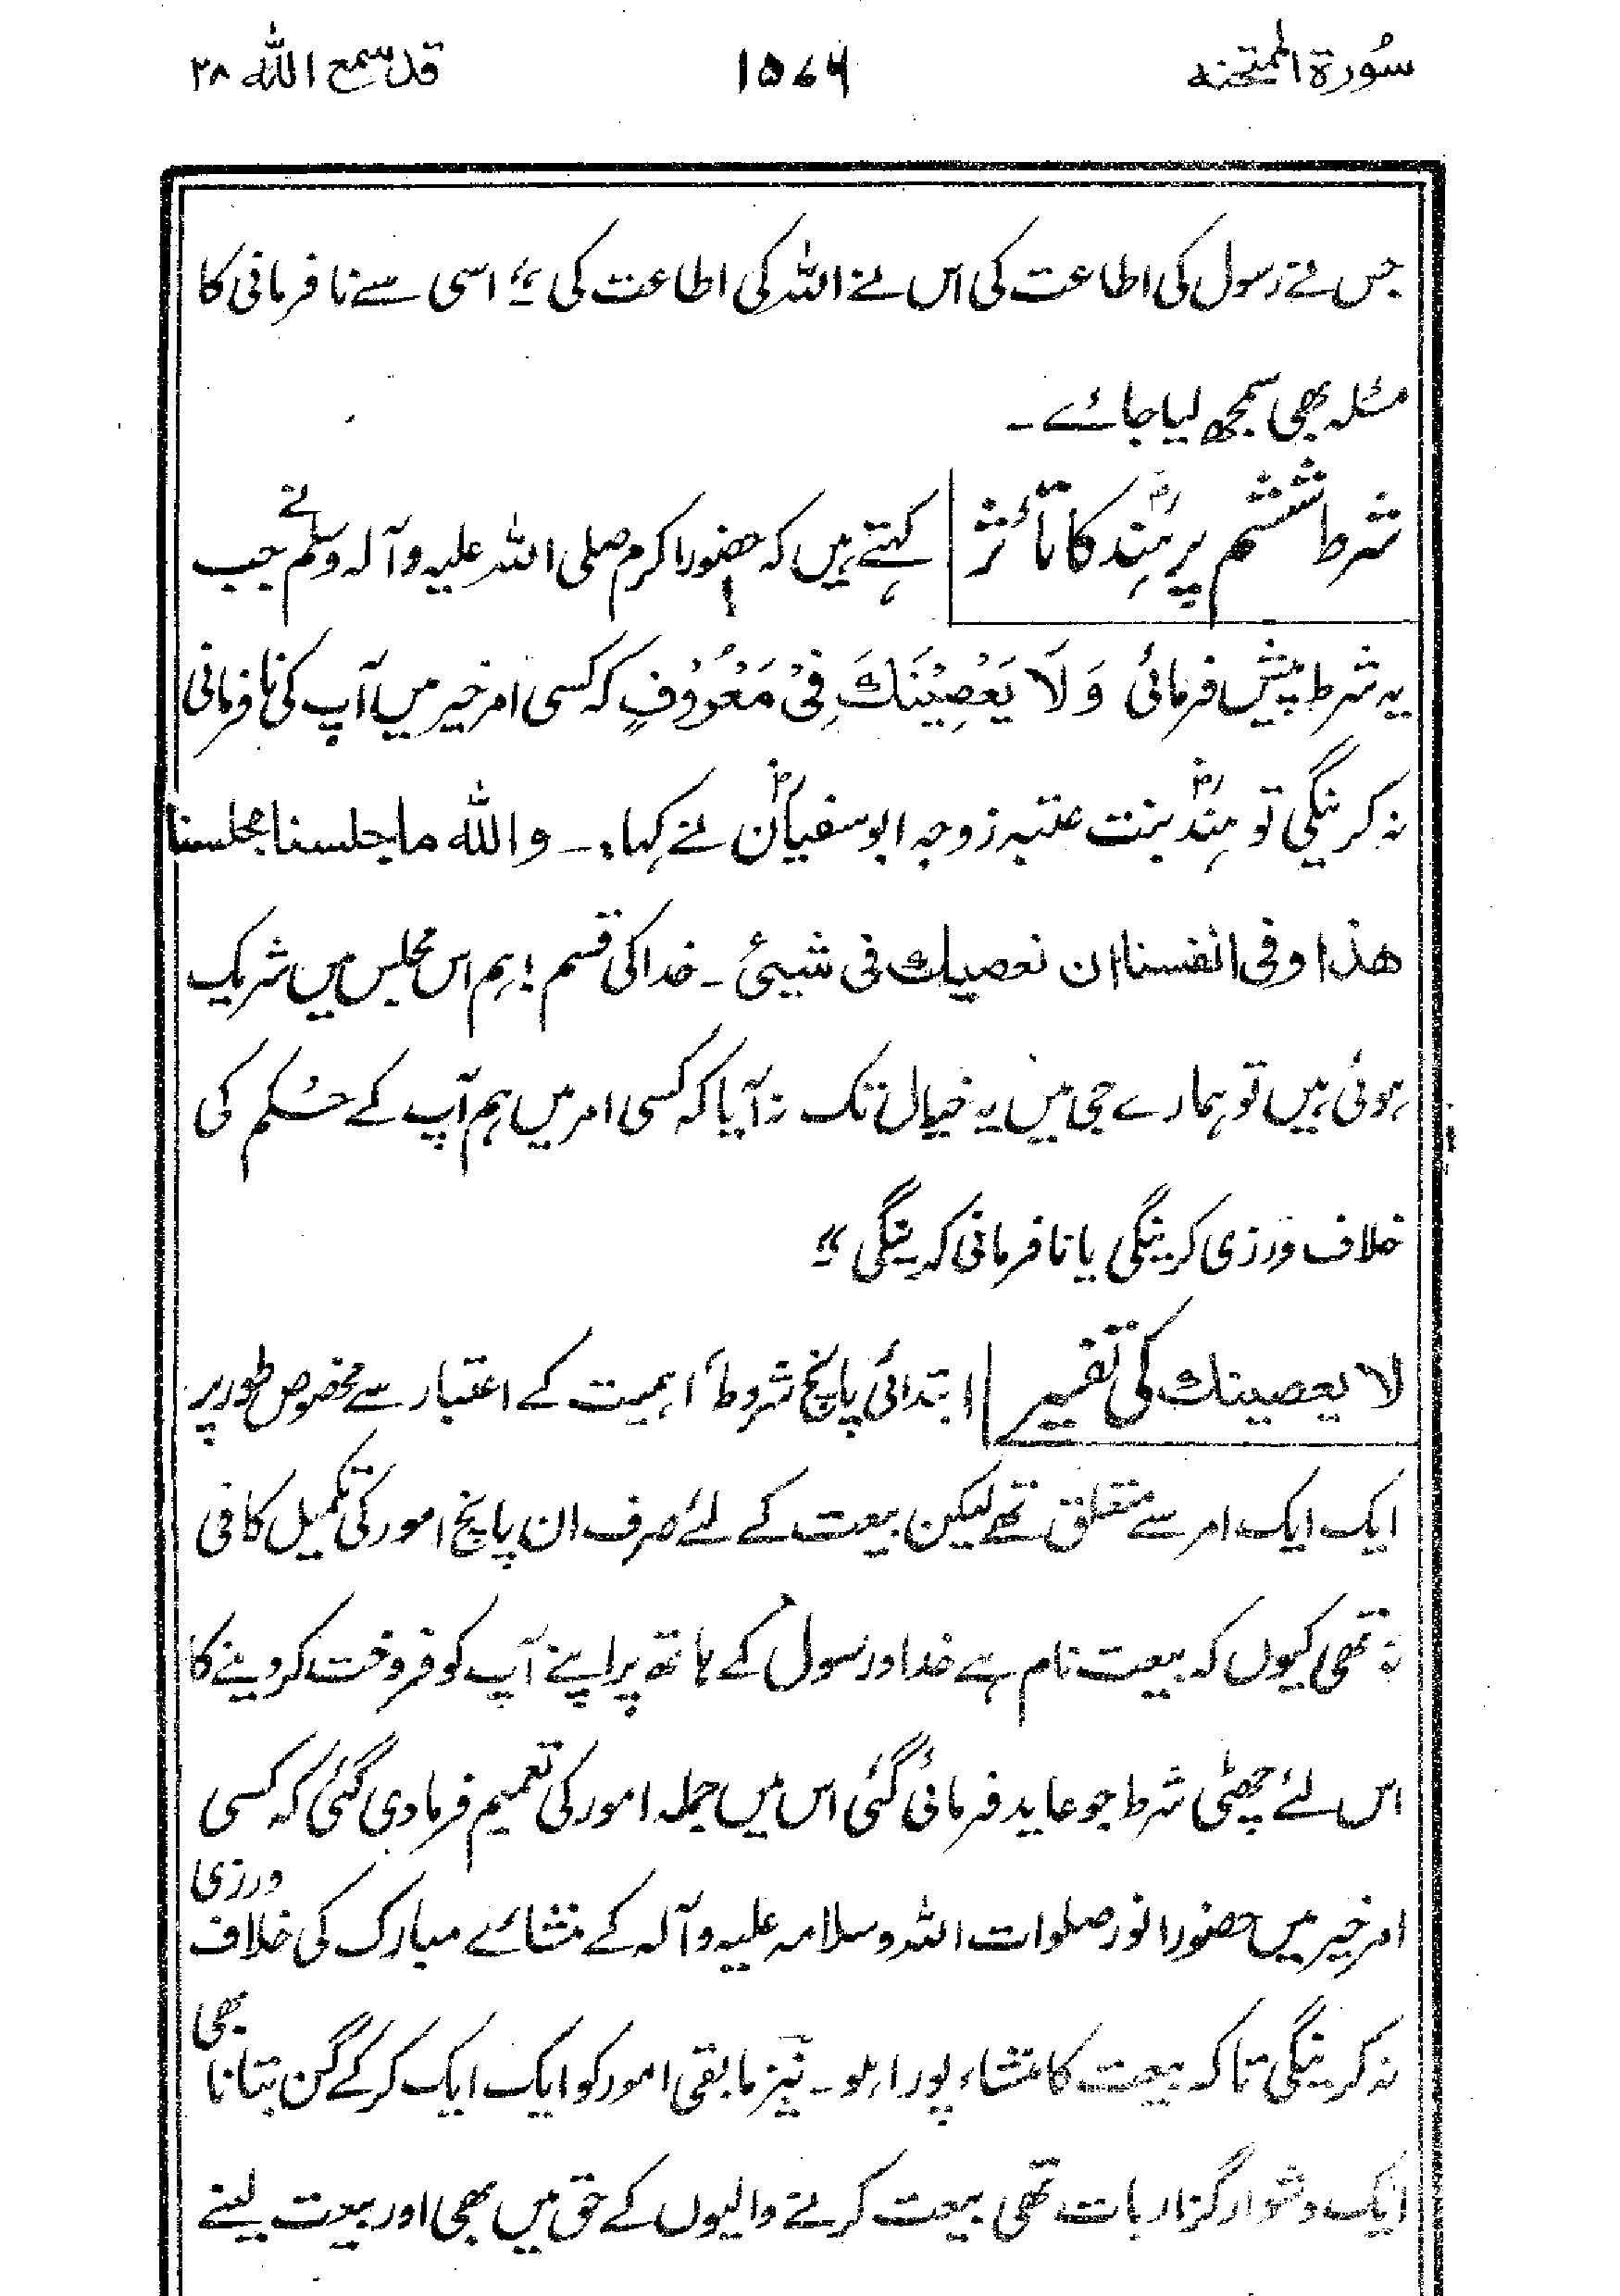 سُورة الممتحنه ۱۵۷۶ قد سمع الله ۲۸
جس نے رسول کی اطاعت کی اس نے اللہ کی اطاعت کی ؛؛ اسی سے نا فرمانی کا
مسئلہ بھی سمجھ لیا جائے ۔
شرط ششم پر ہِندؓ کا تأثر کہتے ہیں کہ حضور اکرم صلی اللہ علیہ وآلہ وسلم نے جب
یہ شرط پیش فرمائی وَلَا يَعْصِيْنَكَ فِىْ مَعْرُوْفٍ کہ کسی امر خیر میں آپ کی نافرمانی
نہ کرینگی تو ہِندؓ بنت عتبہ زوجہ ابو سفیانؓ نے کہا :۔ والله ما جلسنا مجلسنا
هذا وفى انفسنا ان نعصيك فى شيئ ۔ خدا کی قسم ! ہم اس مجلس میں شریک
ہوئی ہیں تو ہمارے جی میں یہ خیال تک نہ آیا کہ کسی امر میں ہم آپ کے حُکم کی
خلاف ورزی کرینگی یا نا فرمانی کرینگی ؛؛
لا يعصينك کی تفسیر ابتدائی پانچ شروط اہمیت کے اعتبار سے مخصوص طور پر
ایک ایک امر سے متعلق تھے لیکن بیعت کے لئے صرف ان پانچ امور کی تکمیل کافی
نہ تھی کیوں کہ بیعت نام ہے خدا ورسول کے ہاتھ پر اپنے آپ کو فروخت کر دینے کا
اس لئے چھٹی شرط جو عاید فرمائی گئی اس میں جملہ امور کی تعمیم فرما دی گئی کہ کسی
امر خیر میں حضور انور صلوات اللہ وسلامہ علیہ وآلہ کے منشائے مبارک کی خلاف ورزی
نہ کرینگی تا کہ بیعت کا منشاء پورا ہو ۔ نیز مابقی امور کو ایک ایک کر کے گن بتانا بھی
ایک دشوار گزار بات تھی بیعت کرنے والیوں کے حق میں بھی اور بیعت لینے